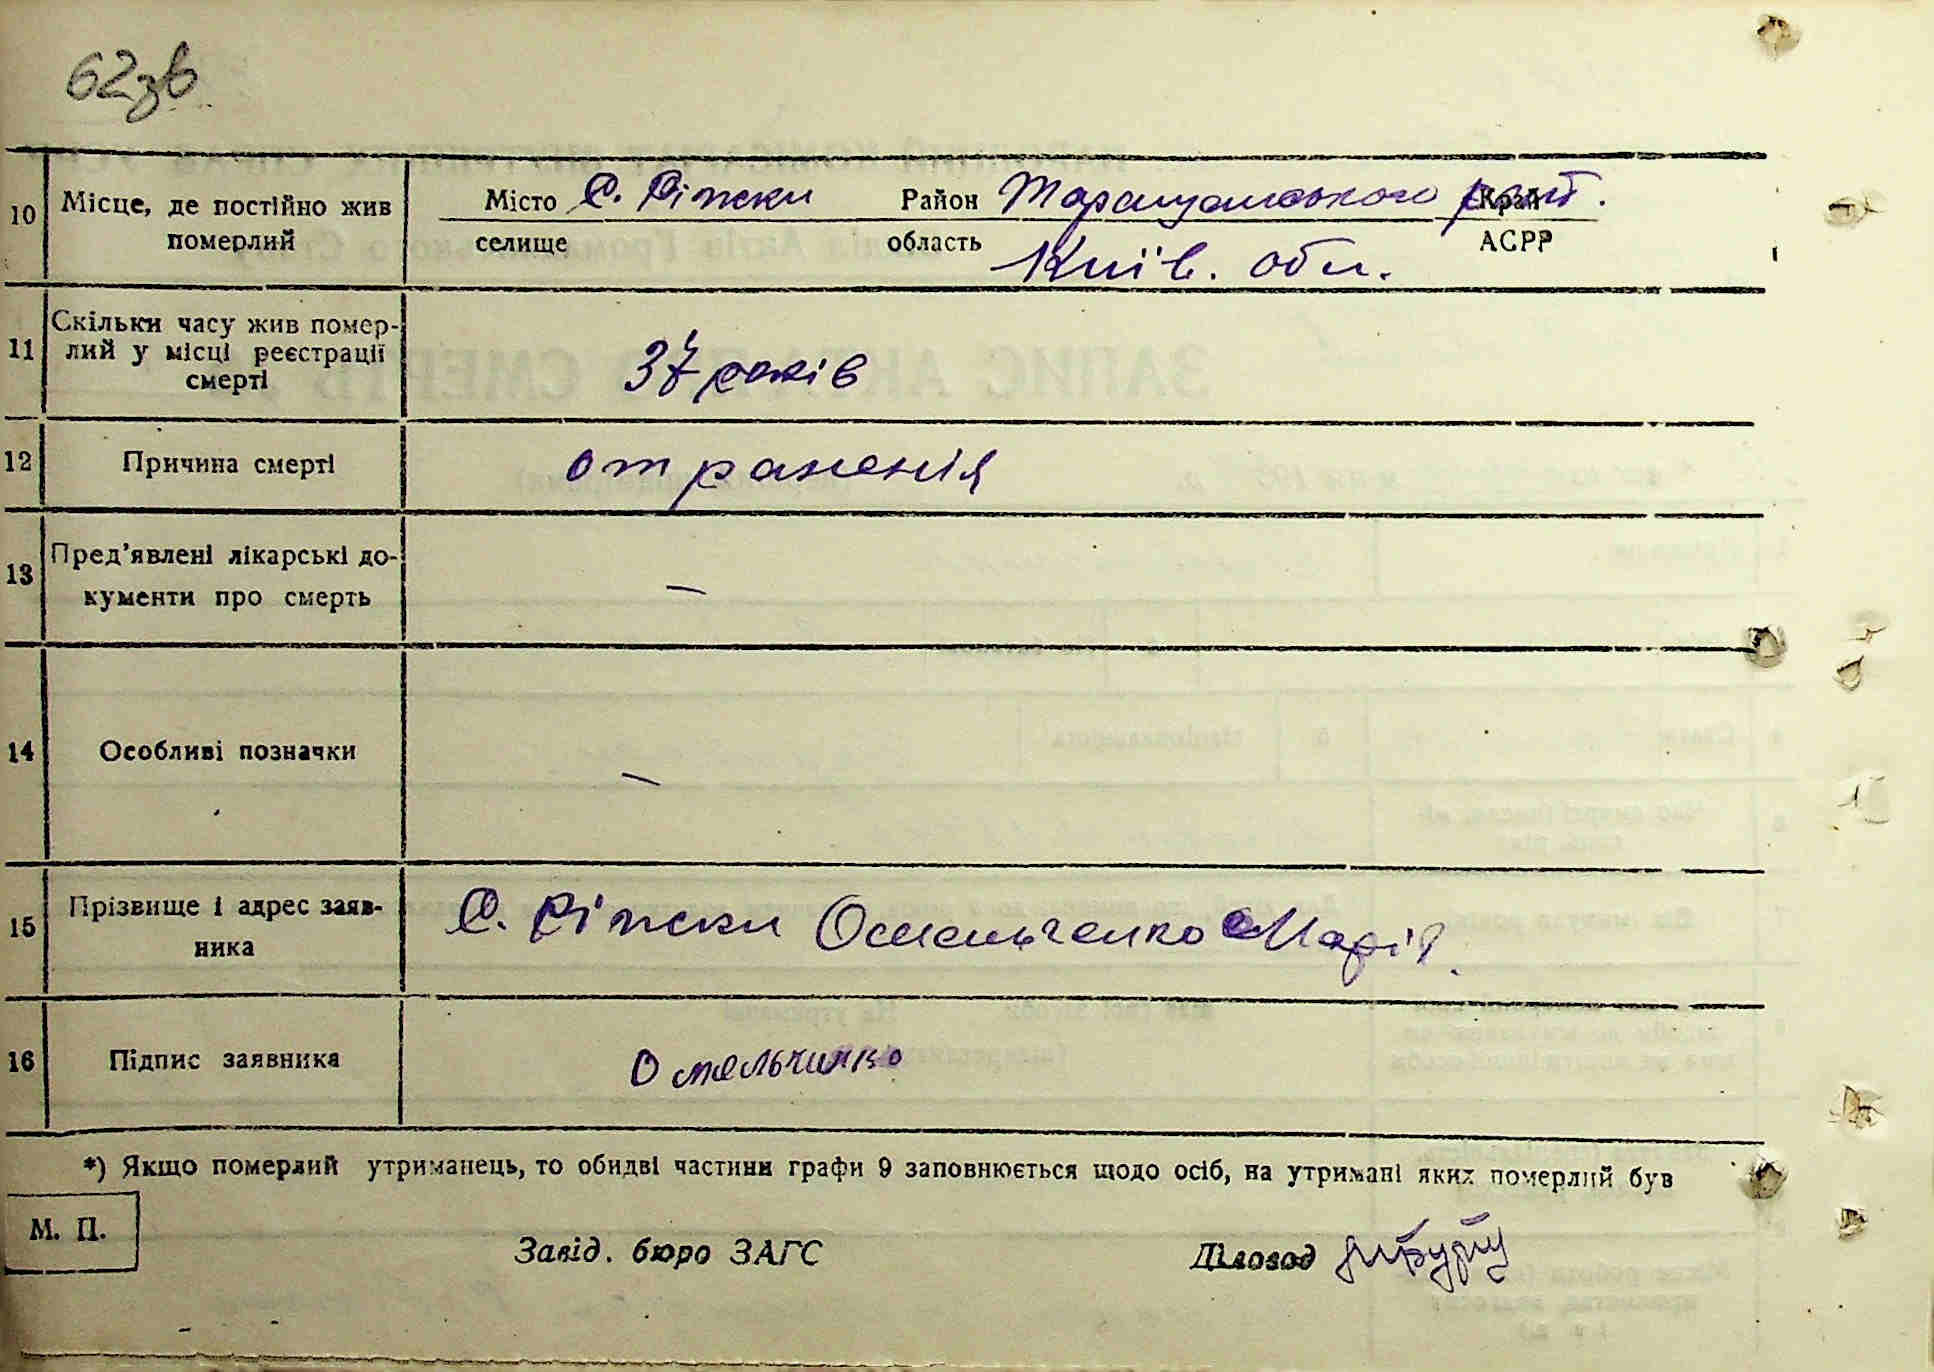 62зв
10 Місце, де постійно жив померлий
Місто с. Ріжки Район Таращанського рай. Край
селище область Київ. обл. АСРР
11 Скільки часу жив помер-
лий у місці реєстрації
смерті
37 років
12 Причина смерті от раненія
13 Пред’явлені лікарські до-
кументи про смерть
—
14 Особливі позначки —
15 Прізвище і адрес заяв-
ника
с. Ріжки Омельченко Марія.
16 Підпис заявника Омельчинко
*) Якщо померлий утриманець, то обидві частини графи 9 заповнюється щодо осіб, на утримані яких померлий був
М. П.
Завід. бюро ЗАГС Діловод